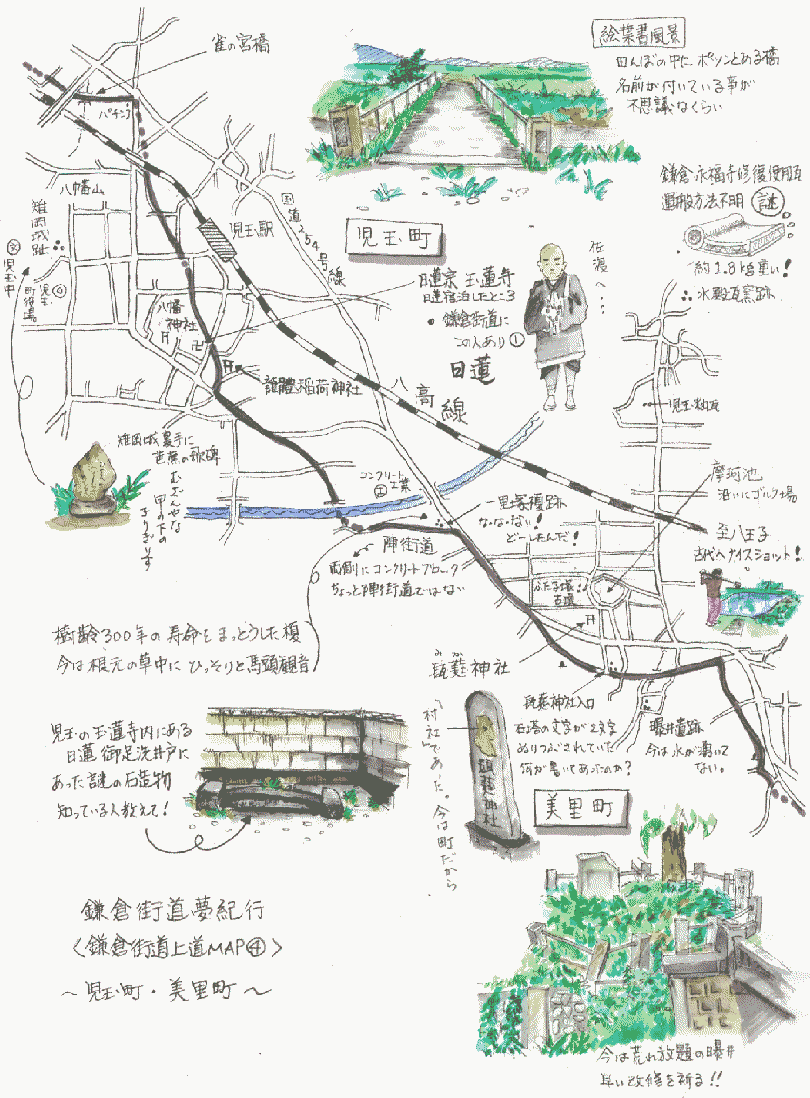 雀の宮橋
絵葉書風景
田んぼの中に ポツンとある橋
名前が付いている事が
不思議なくらい
パチンコ
八幡山
雉岡城跡
文 児玉中
児玉町役場
児玉駅
国道254号線
児玉町
鎌倉 永福寺修復使用瓦
運搬方法不明 謎
約1.8kg重い!
水殿瓦窯跡
佐渡へ…
日蓮宗 玉蓮寺
日蓮宿泊したところ
鎌倉街道に
この人あり①
日蓮
八幡神社
稲荷神社
八高線
雉岡城裏手に
芭蕉の歌碑
むざんやな
甲の下の
きりぎりす
コンクリート工業
一里塚榎跡
な・な・ない!
どーしたんだ!
摩訶池
沿いにゴルフ場
至八王子
古代へナイスショット!
陣街道
両側にコンクリートブロック
ちょっと陣街道ではない
古墳
樹齢300年の寿命をまっとうした榎
今は根元の草中に ひっそりと馬頭観音
みか
𤭖𦿶神社
𤭖𦿶神社入口
石塔の文字が2文字
ぬりつぶされていた
何が書いてあったのか?
曝井遺跡
今は水が湧いて
ない。
「村社」であった。今は町だから
𤭖𦿶神社
児玉の玉蓮寺内にある
日蓮 御足洗井戸に
あった謎の石造物
知っている人教えて!
美里町
鎌倉街道夢紀行
<鎌倉街道上道MAP④>
~児玉町・美里町~
今は荒れ放題の曝井
早い改修を祈る!!